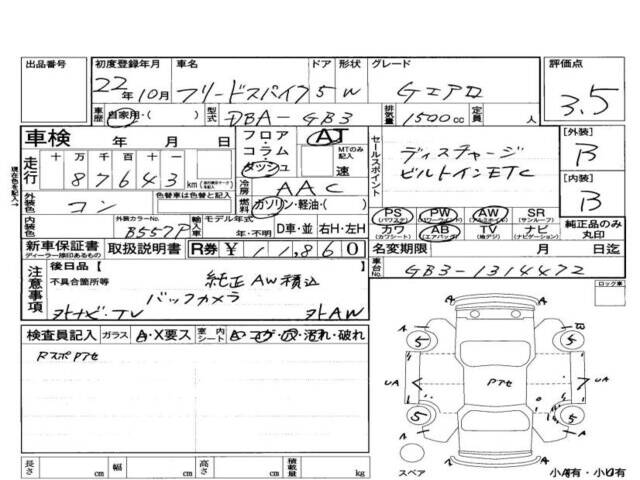 出品番号 初度登録年月 車名 ドア 形状 グレード 評価点
22年10月 フリードスパイク 5 W Gエアロ 3.5
車歴 自家用・( ) 型式 DBA-GB3 排気量 1500cc 定員 人
車検 年 月 日 フロア コラム ダッシュ AT MTのみ記入 速 セールスポイント ディスチャージ [外装] B
現在色を記入→
走行 十 万 千 百 十 一 87643 km 冷房 AAC ビルトインETC [内装] B
外装色 コン 色替車は色替前の色 燃料 ガソリン・軽油・( )
内装色 外装カラーNo. B557P 輸入車 モデル年式 年・不明 D車・並 右H・左H
PS (パワステ) PW (パワーウィンド) AW (アルミホイル) SR (サンルーフ) 純正品のみ丸印
カワ (カワシート) AB (エアバッグ) TV (地デジ) ナビ (ナビゲーション)
新車保証書 ディーラー捺印あるもの 取扱説明書 R券 ¥ 11,860 名変期限 月 日迄
車台No. GB3-1314472
ロック車
注意事項 後日品 [ ]
不具合箇所等 純正AW積込
バックカメラ
社外ナビ・TV 社外AW
検査員記入 ガラス A・X要ス 室内シート A・コゲ・穴・汚れ・破れ
RスポPアセ
A A
5 5
UA Pアセ UA
5 5
A A
スペア
小A有・小U有
長さ cm 幅 cm 高さ cm 積載量 kg